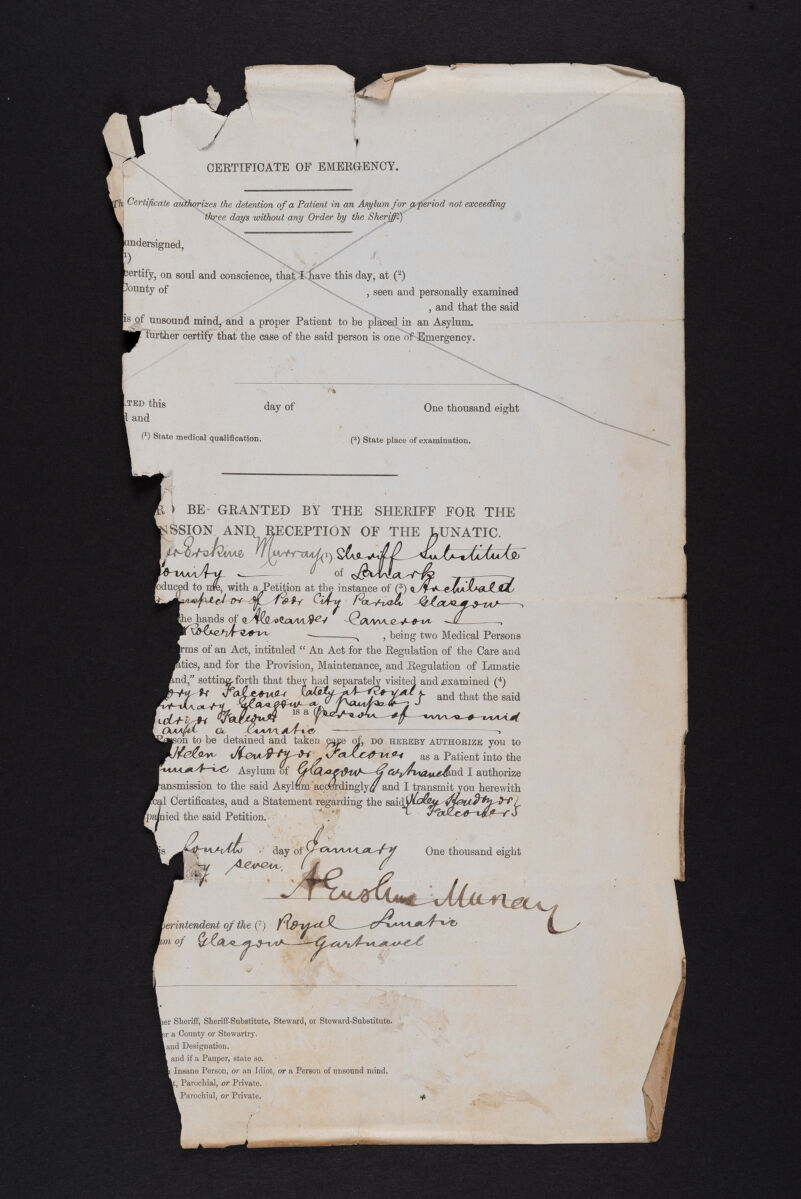 CERTIFICATE OF EMERGENCY.
Certificate authorizes the detention of a Patient in an Asylum for a period not exceeding
three days without any Order by the Sheriff.)
undersigned,
(¹)
certify, on soul and conscience, that I have this day, at (²)
County of , seen and personally examined
, and that the said
is of unsound mind, and a proper Patient to be placed in an Asylum.
further certify that the case of the said person is one of Emergency.
ATED this day of One thousand eight
d and
(¹) State medical qualification. (²) State place of examination.
BE GRANTED BY THE SHERIFF FOR THE
SSION AND RECEPTION OF THE LUNATIC.
Erskine Murray (¹) Sheriff Substitute
ounty of Lanark
oduced to me, with a Petition at the instance of (³) Archibald
Inspector of Poor City Parish Glasgow
the hands of Alexander Cameron
Robertson , being two Medical Persons
rms of an Act, intituled “ An Act for the Regulation of the Care and
atics, and for the Provision, Maintenance, and Regulation of Lunatic
and,” setting forth that they had separately visited and examined (⁴)
dry or Falconer lately at Royal and that the said
irmary Glasgow a pauper
ndry or Falconer is a person of unsound
and a lunatic
Person to be detained and taken care of, DO HEREBY AUTHORIZE you to
Helen Hendry or Falconer as a Patient into the
unatic Asylum of Glasgow Gartnavel and I authorize
ransmission to the said Asylum accordingly; and I transmit you herewith
cal Certificates, and a Statement regarding the said Helen Hendry or
panied the said Petition. Falconer
is fourth day of January One thousand eight
y seven.
A Erskine Murray
perintendent of the (⁷) Royal Lunatic
um of Glasgow Gartnavel
er Sheriff, Sheriff-Substitute, Steward, or Steward-Substitute.
er a County or Stewartry.
and Designation.
and if a Pauper, state so.
Insane Person, or an Idiot, or a Person of unsound mind.
t, Parochial, or Private.
Parochial, or Private.